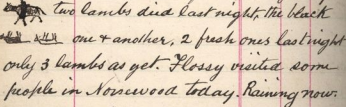 two lambs died last night, the black
one & another, 2 fresh ones last night
only 3 lambs as yet. Flossy visited some
people in Norsewood today. Raining now.